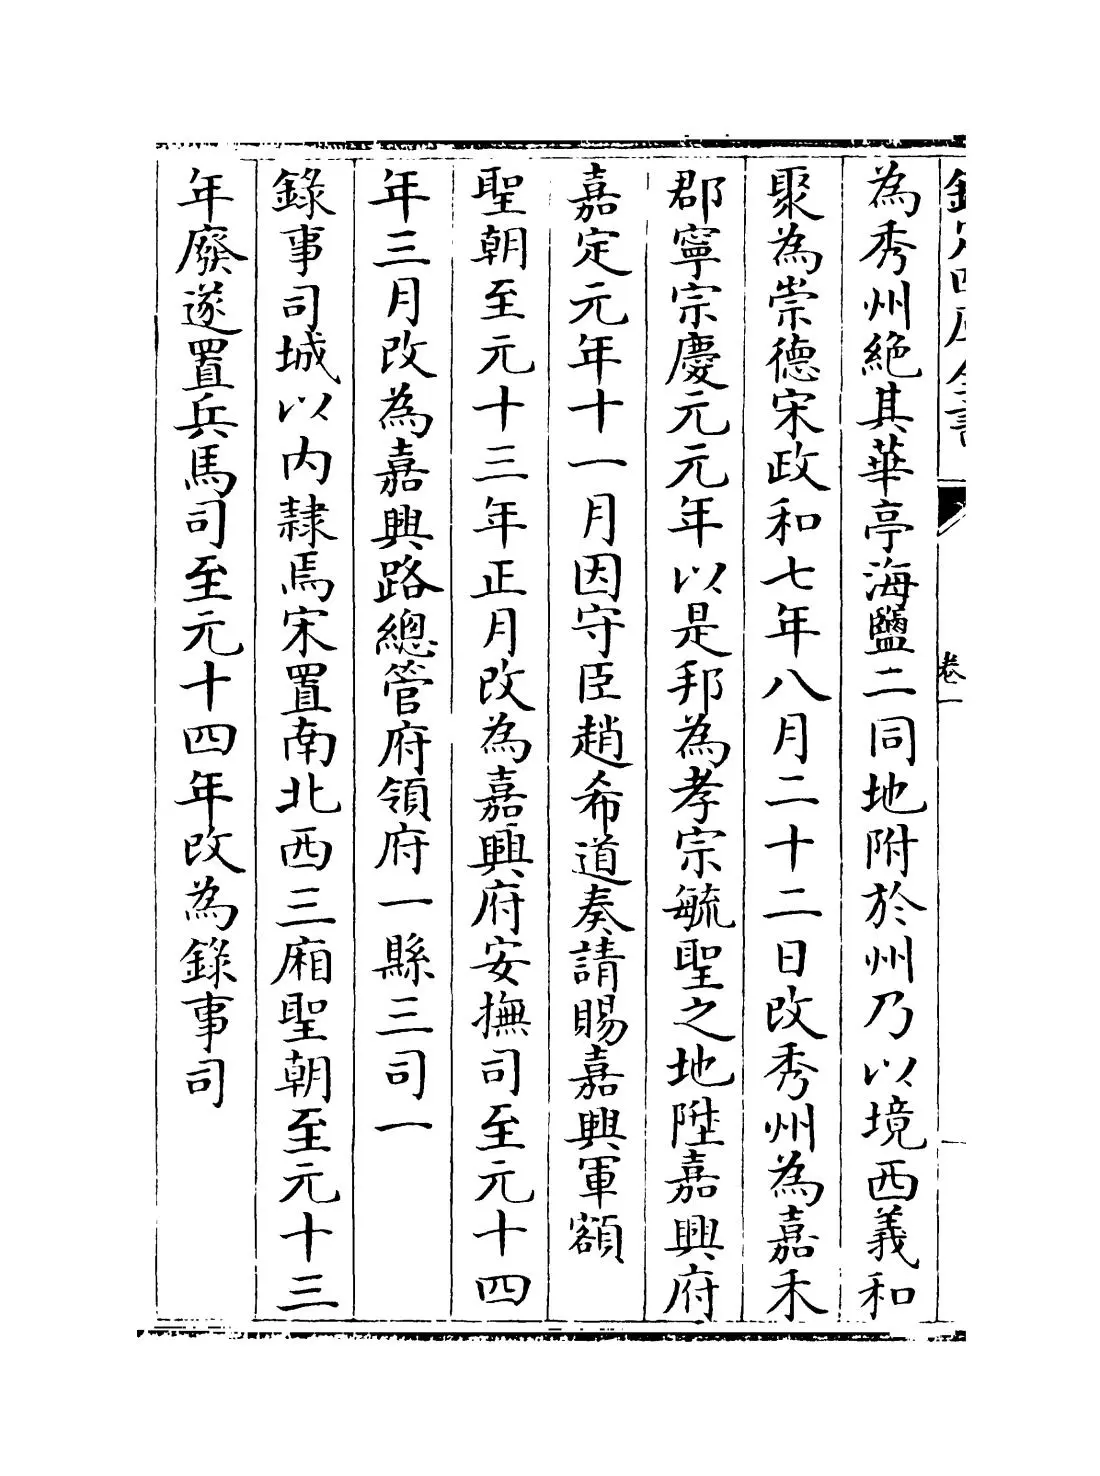 欽定四庫全書
卷一
為秀州絶其華亭海鹽二同地附於州乃以境西義和
聚為崇德宋政和七年八月二十二日改秀州為嘉禾
郡寧宗慶元元年以是邦為孝宗毓聖之地陞嘉興府
嘉定元年十一月因守臣趙希道奏請賜嘉興軍額
聖朝至元十三年正月改為嘉興府安撫司至元十四
年三月改為嘉興路總管府領府一縣三司一
錄事司城以内隸焉宋置南北西三廂聖朝至元十三
年廢遂置兵馬司至元十四年改為錄事司